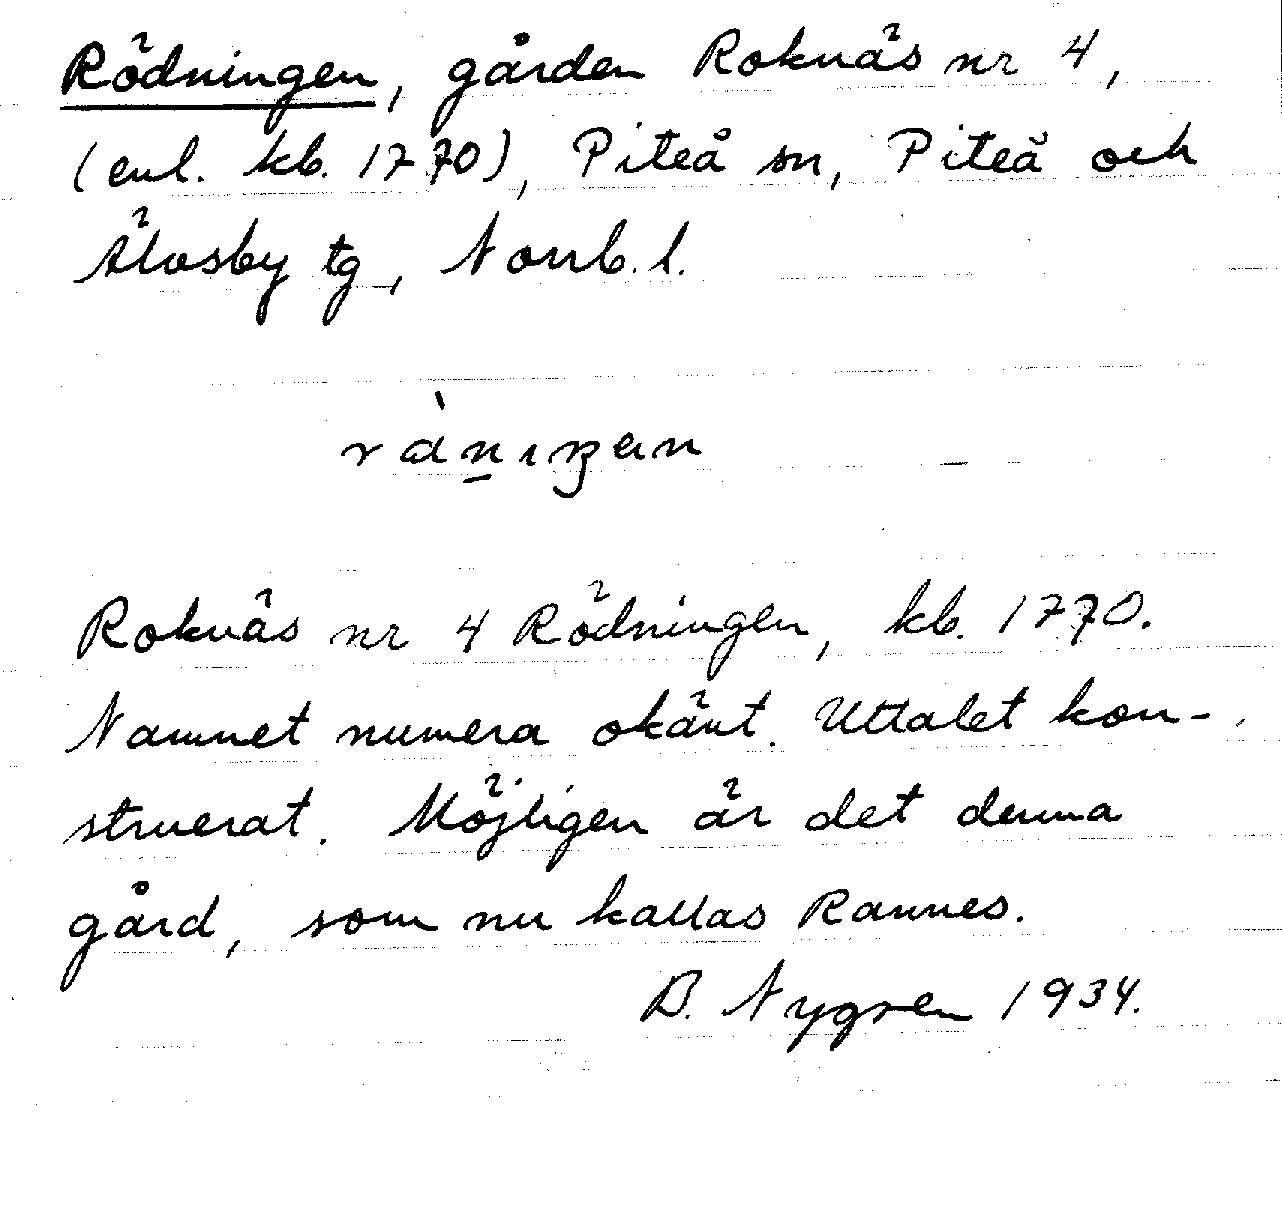 Rödningen, gården Roknäs nr 4,
(enl. kb. 1770), Piteå sn, Piteå och
Älvsby tg, Norrb. l.
ràn̲ıŋen
Roknäs nr 4 Rödningen, kb. 1770.
Namnet numera okänt. Uttalet kon-
struerat. Möjligen är det denna
gård, som nu kallas Rannes.
B. Nygren 1934.